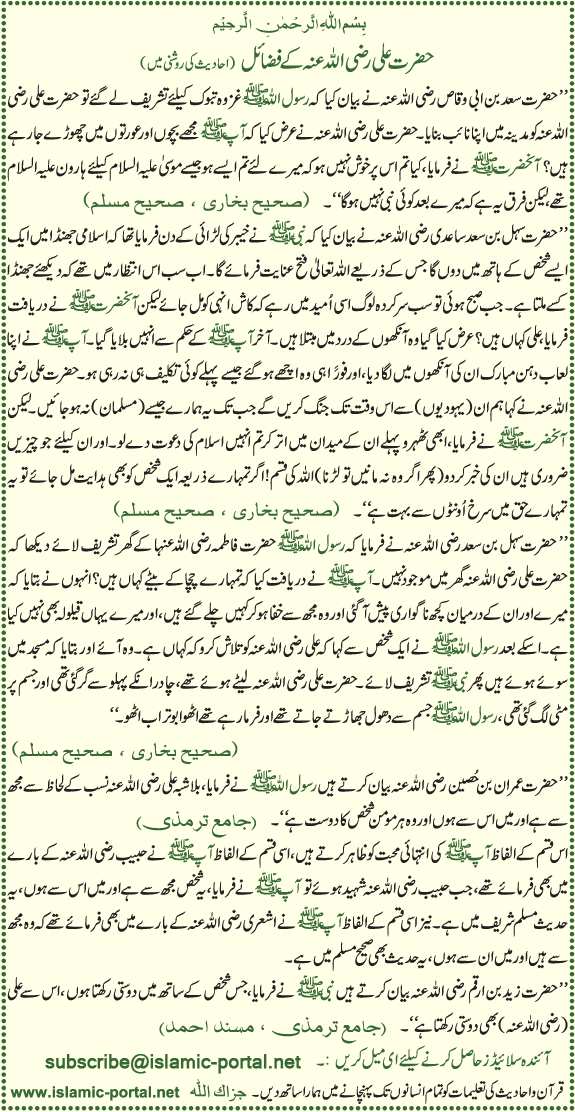 بِسْمِ اللهِ الرَّحْمٰنِ الرَّحِيْمِ
حضرت علی رضی اللہ عنہ کے فضائل (احادیث کی روشنی میں)
’’حضرت سعد بن ابی وقاص رضی اللہ عنہ نے بیان کیا کہ رسول اللہ ﷺ غزوہ تبوک کیلئے تشریف لے گئے تو حضرت علی رضی
اللہ عنہ کو مدینہ میں اپنا نائب بنایا۔ حضرت علی رضی اللہ عنہ نے عرض کیا کہ آپ ﷺ مجھے بچوں اور عورتوں میں چھوڑے جارہے
ہیں؟ آنحضرت ﷺ نے فرمایا، کیا تم اس پر خوش نہیں ہو کہ میرے لئے تم ایسے ہو جیسے موسیٰ علیہ السلام کیلئے ہارون علیہ السلام
تھے، لیکن فرق یہ ہے کہ میرے بعد کوئی نبی نہیں ہوگا‘‘۔ (صحیح بخاری ، صحیح مسلم)
’’حضرت سہل بن سعد ساعدی رضی اللہ عنہ نے بیان کیا کہ نبی ﷺ نے خیبر کی لڑائی کے دن فرمایا تھا کہ اسلامی جھنڈا میں ایک
ایسے شخص کے ہاتھ میں دوں گا جس کے ذریعے اللہ تعالیٰ فتح عنایت فرمائے گا۔ اب سب اس انتظار میں تھے کہ دیکھئے جھنڈا
کسے ملتا ہے۔ جب صبح ہوئی تو سب سرکردہ لوگ اسی اُمید میں رہے کہ کاش انہی کو مل جائے لیکن آنحضرت ﷺ نے دریافت
فرمایا، علی کہاں ہیں؟ عرض کیا گیا وہ آنکھوں کے درد میں مبتلا ہیں۔ آخر آپ ﷺ کے حکم سے انہیں بلایا گیا۔ آپ ﷺ نے اپنا
لعاب دہن مبارک ان کی آنکھوں میں لگا دیا، اور فوراً ہی وہ اچھے ہوگئے جیسے پہلے کوئی تکلیف ہی نہ رہی ہو۔ حضرت علی رضی
اللہ عنہ نے کہا ہم ان (یہودیوں) سے اس وقت تک جنگ کریں گے جب تک یہ ہمارے جیسے (مسلمان) نہ ہو جائیں۔ لیکن
آنحضرت ﷺ نے فرمایا، ابھی ٹھہرو پہلے ان کے میدان میں اتر کر تم انہیں اسلام کی دعوت دے لو۔ اور ان کیلئے جو چیزیں
ضروری ہیں ان کی خبر کردو (پھر اگر وہ نہ مانیں تو لڑنا) اللہ کی قسم! اگر تمہارے ذریعہ ایک شخص کو بھی ہدایت مل جائے تو یہ
تمہارے حق میں سرخ اُونٹوں سے بہت ہے‘‘۔ (صحیح بخاری ، صحیح مسلم)
’’حضرت سہل بن سعد رضی اللہ عنہ نے فرمایا کہ رسول اللہ ﷺ حضرت فاطمہ رضی اللہ عنہا کے گھر تشریف لائے دیکھا کہ
حضرت علی رضی اللہ عنہ گھر میں موجود نہیں۔ آپ ﷺ نے دریافت کیا کہ تمہارے چچا کے بیٹے کہاں ہیں؟ انہوں نے بتایا کہ
میرے اور ان کے درمیان کچھ ناگواری پیش آگئی اور وہ مجھ سے خفا ہوکر کہیں چلے گئے ہیں، اور میرے یہاں قیلولہ بھی نہیں کیا
ہے۔ اسکے بعد رسول اللہ ﷺ نے ایک شخص سے کہا کہ علی رضی اللہ عنہ کو تلاش کرو کہ کہاں ہے۔ وہ آئے اور بتایا کہ مسجد میں
سوئے ہوئے ہیں پھر نبی ﷺ تشریف لائے۔ حضرت علی رضی اللہ عنہ لیٹے ہوئے تھے، چادر انکے پہلو سے گر گئی تھی اور جسم پر
مٹی لگ گئی تھی، رسول اللہ ﷺ جسم سے دھول جھاڑتے جاتے تھے اور فرما رہے تھے اٹھو ابوتراب اٹھو۔‘‘
(صحیح بخاری ، صحیح مسلم)
’’حضرت عمران بن حُصین رضی اللہ عنہ بیان کرتے ہیں رسول اللہ ﷺ نے فرمایا، بلاشبہ علی رضی اللہ عنہ نسب کے لحاظ سے مجھ
سے ہے اور میں اس سے ہوں اور وہ ہر مومن شخص کا دوست ہے‘‘۔ (جامع ترمذی)
اس قسم کے الفاظ آپ ﷺ کی انتہائی محبت کو ظاہر کرتے ہیں، اسی قسم کے الفاظ آپ ﷺ نے حبیب رضی اللہ عنہ کے بارے
میں بھی فرمائے تھے، جب حبیب رضی اللہ عنہ شہید ہوئے تو آپ ﷺ نے فرمایا، یہ شخص مجھ سے ہے اور میں اس سے ہوں، یہ
حدیث مسلم شریف میں ہے۔ نیز اسی قسم کے الفاظ آپ ﷺ نے اشعری رضی اللہ عنہ کے بارے میں بھی فرمائے تھے کہ وہ مجھ
سے ہیں اور میں ان سے ہوں، یہ حدیث بھی صحیح مسلم میں ہے۔
’’حضرت زید بن ارقم رضی اللہ عنہ بیان کرتے ہیں نبی ﷺ نے فرمایا، جس شخص کے ساتھ میں دوستی رکھتا ہوں، اس سے علی
(رضی اللہ عنہ) بھی دوستی رکھتا ہے‘‘۔ (جامع ترمذی ، مسند احمد)
آئندہ سلائیڈز حاصل کرنے کیلئے ای میل کریں :۔ subscribe@islamic-portal.net
قرآن و احادیث کی تعلیمات کو تمام انسانوں تک پہنچانے میں ہمارا ساتھ دیں۔ جزاك الله www.islamic-portal.net